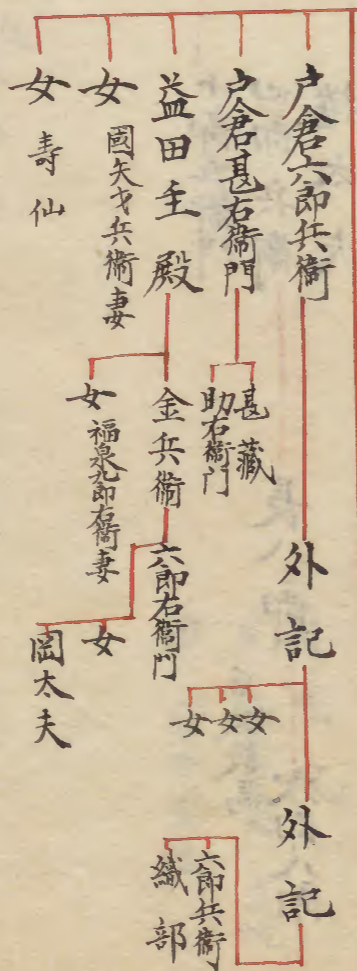 戸倉六郎兵衛
外記
女
女
女
外記
六郎兵衛
織部
戸倉甚右衛門
甚藏
助右衛門
益田主殿
金兵衛
六郎右衛門
女
岡太夫
女 福泉九郎右衛門妻
女 國矢才兵衛妻
女 寿仙